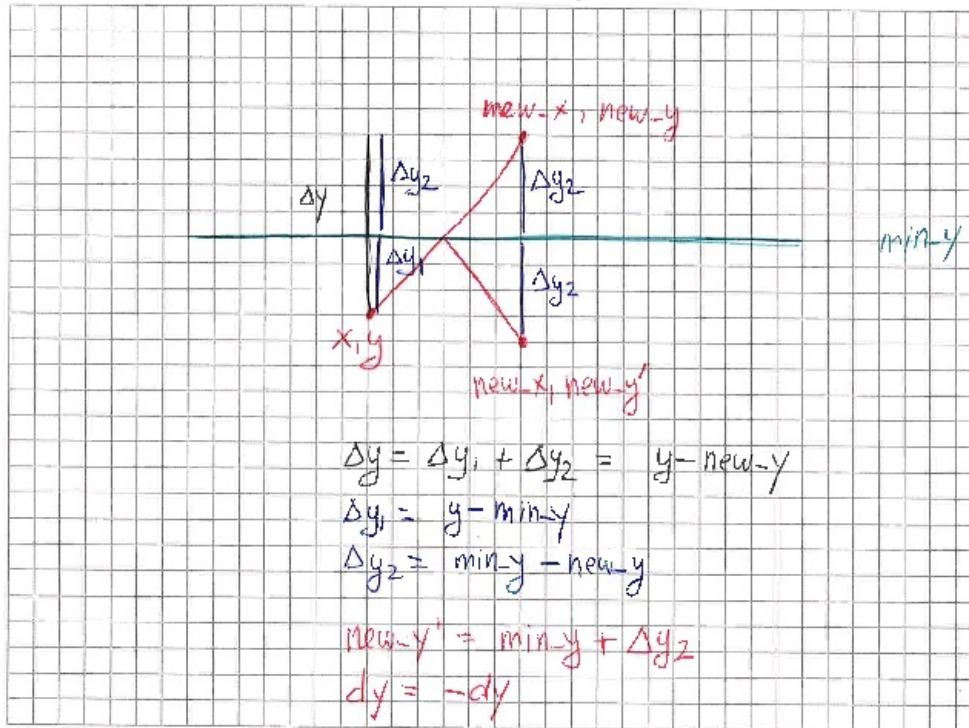 mew-x, new-y
Δy2
Δy2
Δy
min-y
Δy1
Δy2
x, y
new-x, new-y'
Δy = Δy1 + Δy2 = y - new-y
Δy1 = y - min-y
Δy2 = min-y - new-y
new-y' = min-y + Δy2
dy = -dy